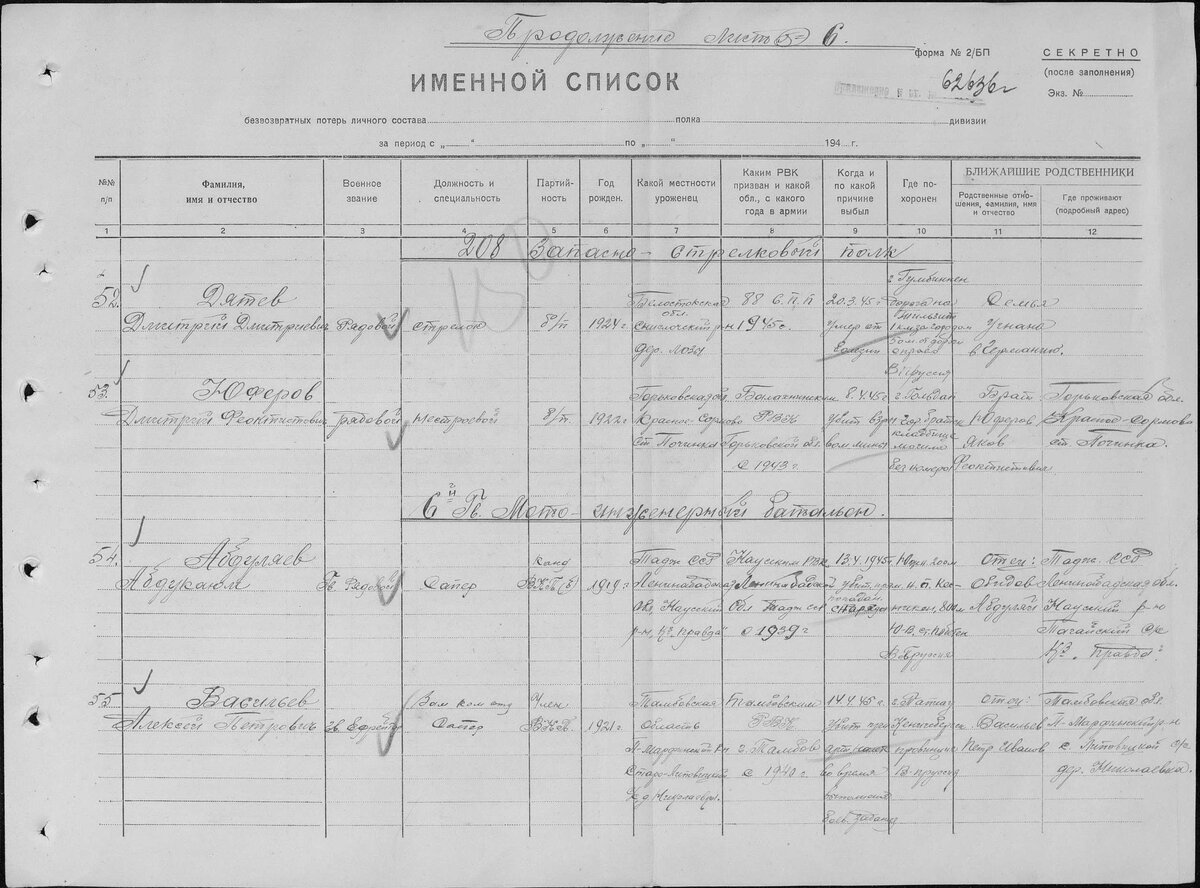 Продолжение Листъ 6.
форма № 2/БП
СЕКРЕТНО
(после заполнения)
Экз. №
62636г
ИМЕННОЙ СПИСОК
безвозвратных потерь личного состава полка дивизии
за период с „ “ по „ “ 194 г.
№№ п/п
Фамилия, имя и отчество
Военное звание
Должность и специальность
Партий-
ность
Год рожден.
Какой местности уроженец
Каким РВК призван и какой обл., с какого года в армии
Когда и по какой причине выбыл
Где по-
хоронен
БЛИЖАЙШИЕ РОДСТВЕННИКИ
Родственные отно-
шения, фамилия, имя и отчество
Где проживают (подробный адрес)
1 2 3 4 5 6 7 8 9 10 11 12
208 Запасно-стрелковый полк
52. Дятев
Дмитрий Дмитриевич
Рядовой
стрелок
б/п
1924 г.
Белостокская
обл.
дер. Лоза
88 с.п.п
1945 г.
20.3.45 г
умер от
болезни
г. Гумбиннен
дорога на
Тильзит
1 км за городом
справа
В. Пруссия
Семья
угнана
в Германию.
53. Юферов
Дмитрий Феоктистович
рядовой
б/п.
1922 г
Горьковская обл.
Красное-Сормово
ст. Починка
Балахнинским
РВК
Горьковской обл.
с 1943 г.
8.4.45 г
Убит взры
вом мины
братск
кладбище
могила
без номера
Брат
Юферов
Яков
Феоктистович
Горьковская обл.
Красное-Сормово
ст. Починка.
6й Гв. Мото-инженерный батальон.
54. Абдулаев
Абдукаюм
Гв. Рядовой
Сапер
Канд
ВКП(б)
1919 г
Тадж. ССР
Ленинабадская
обл, Науский
р-н, К-з „Правда“
Науским РВК
Ленинабадской
обл Тадж ССР
с 1939 г
13.4.1945 г
убит прям.
попадан.
снаряда
Южн. 200м
н.п. Кес-
никен, 800м
Ю-В. ст.
В. Пруссия
Отец:
Абдулай
Тадж. ССР
Ленинабадская обл.
Науский р-н
Тагайский с/с
К-з „Правда“
55 Васильев
Алексей Петрович
Гв. Ефрейтор
Зам ком отд
Сапер
Член
ВКПб.
1921 г.
Тамбовская
область
д. Николаевк.
Тамбовским
РВК
г. Тамбов
с 1940 г
14.4.45 г
Убит при
во время
выполнения
боев. задания
г. Ратхау
Кенигсберг
провинция
В-Пруссия
отец:
Васильев
Петр Иванов
Тамбовская обл
с. Литовицкой с/с
дер. Николаевка.